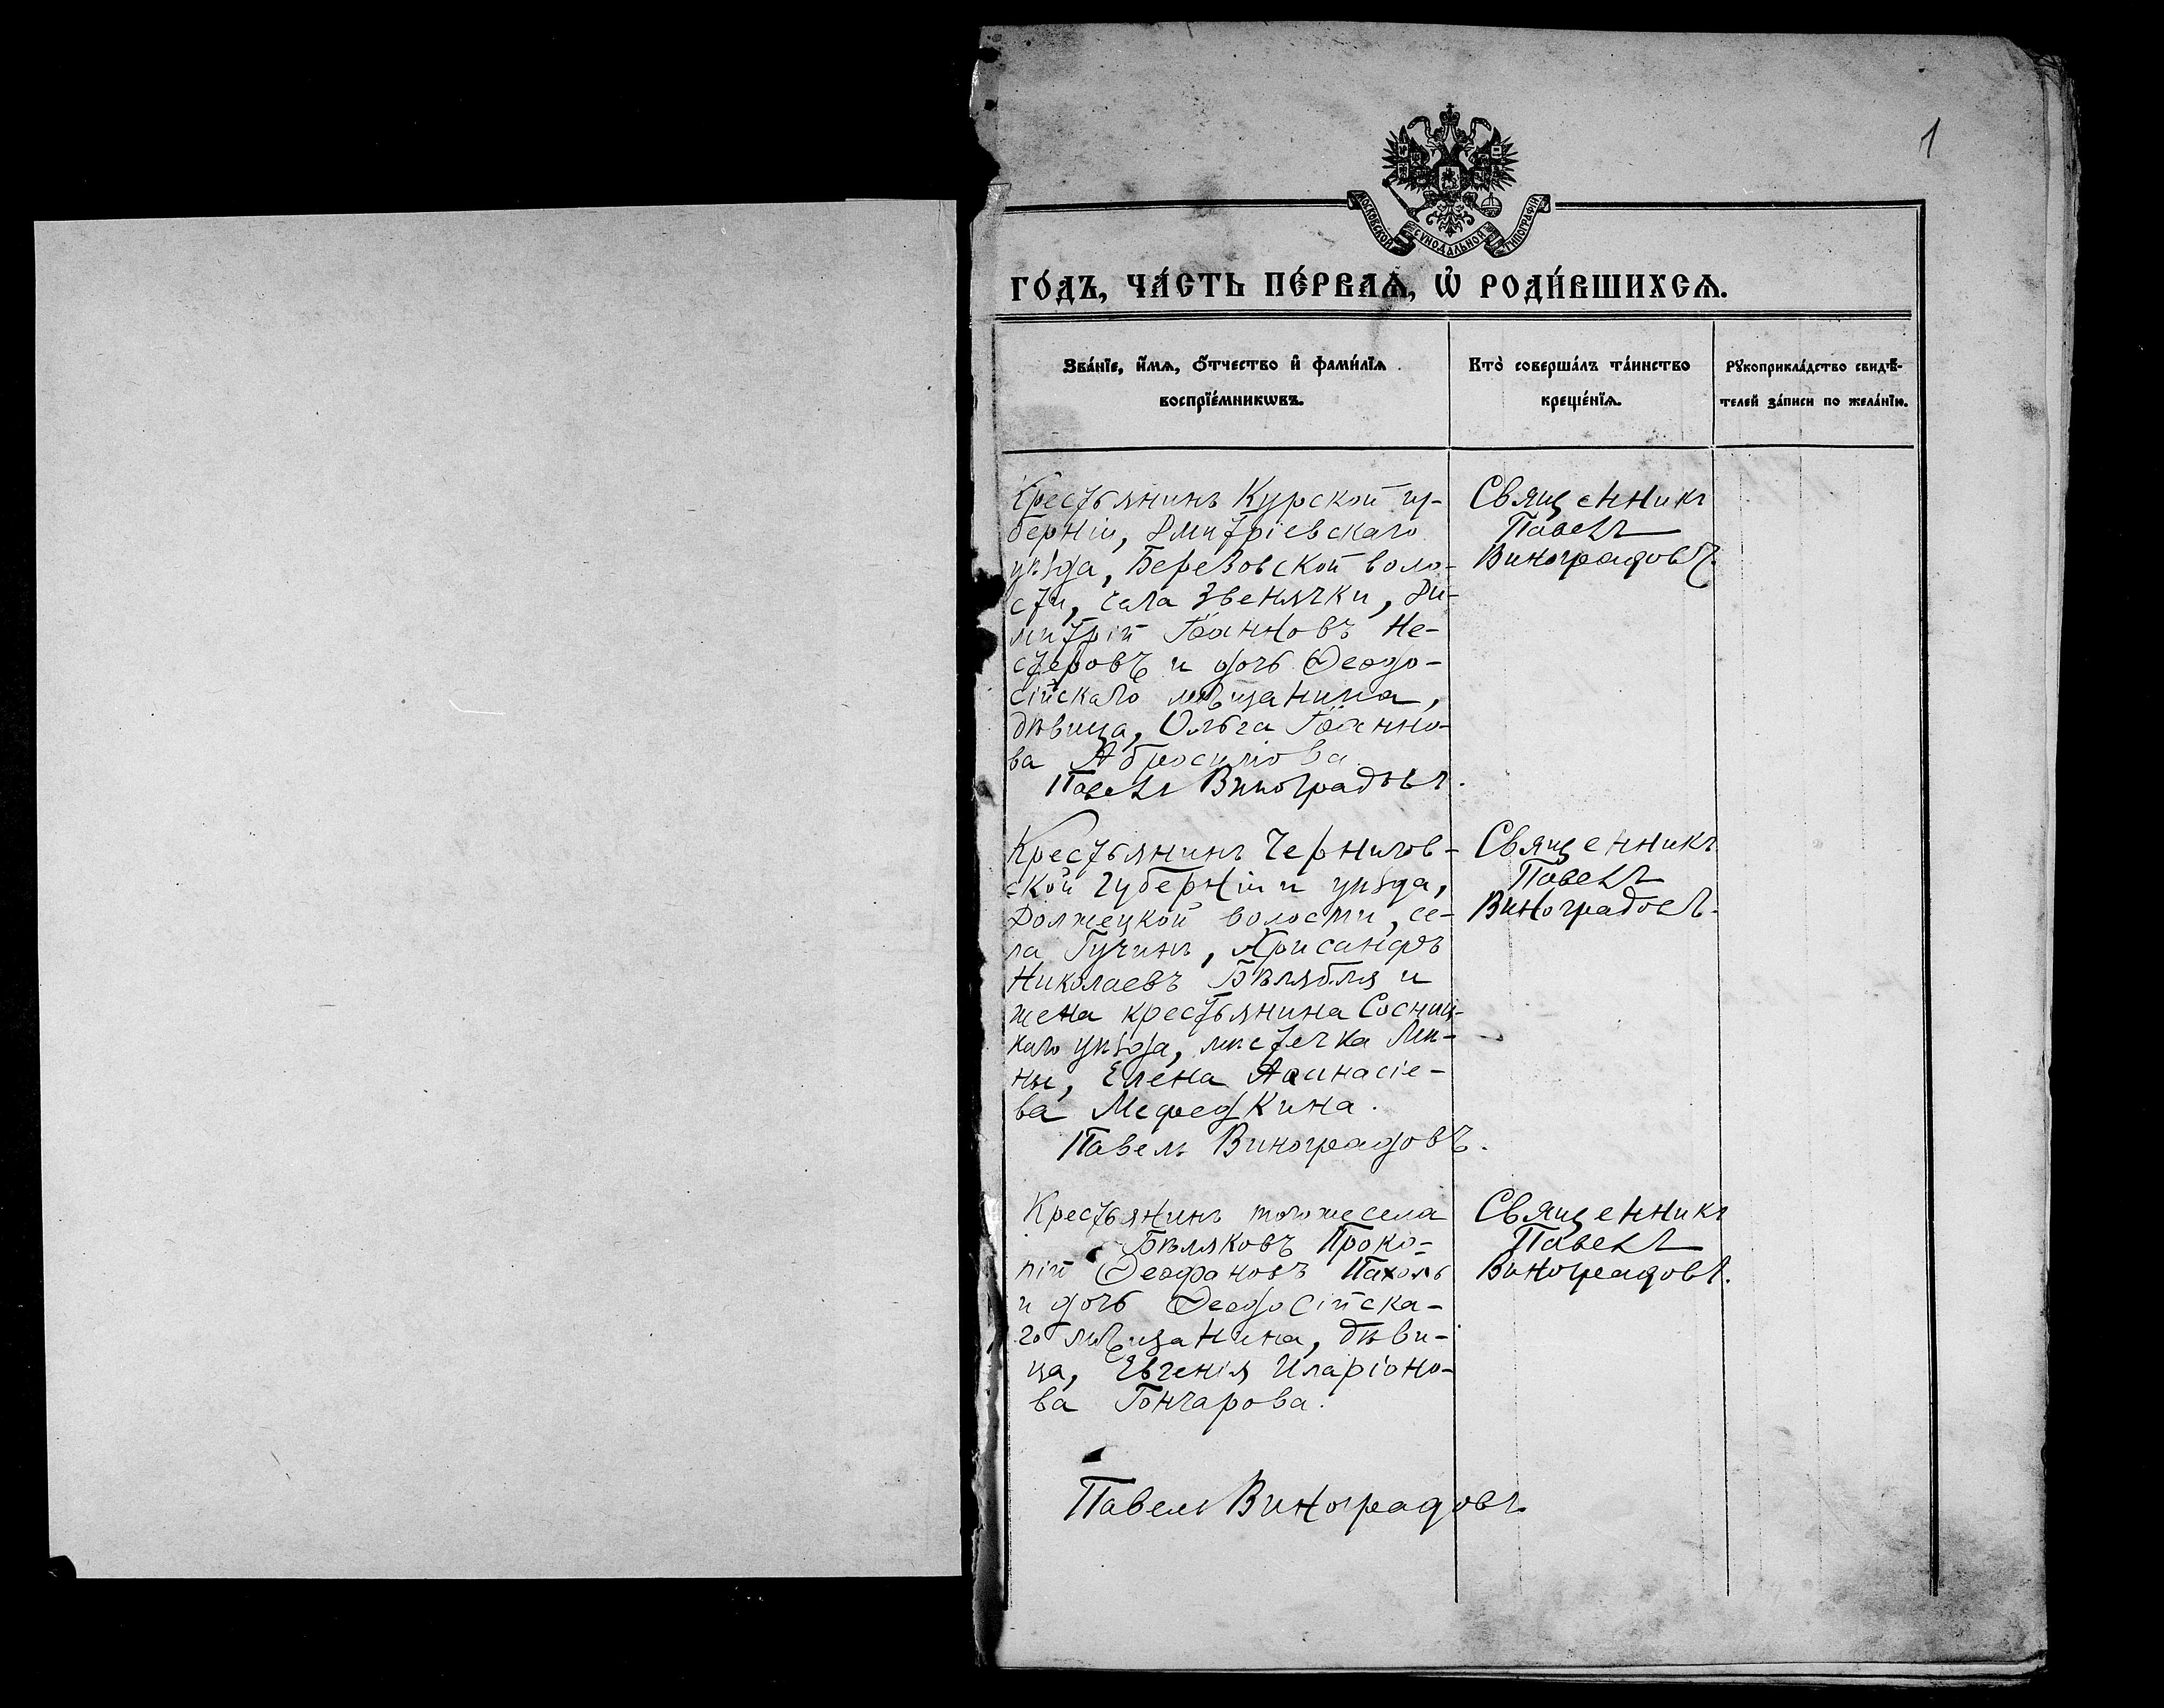 1
МОСКОВСКОЙ СѴНОДАЛЬНОЙ ТИПОГРАФІИ
ГО́ДЪ, ЧА́СТЬ ПЕ́РВАѦ, Ѡ҆ РОДИ́ВШИХСѦ.
Зва́нїе, и҆́мѧ, ѻ҆́тчество и҆ фами́лїѧ
воспрїе́мникѡвъ.
Кто̀ соверша́лъ та́инство
креще́нїѧ.
Рꙋкоприкла́дство свидѣ́-
телей за́писи по жела́нїю.
Крестьянинъ Курской гу-
берніи, Дмитріевскаго
уѣзда, Березовской воло-
сти, села Звенячки, Ди-
митрій Іоанновъ Не-
стеровъ и дочь Ѳеодо-
сійскаго мѣщанина,
дѣвица, Ольга Іоанно-
ва Абросимова
Павелъ Виноградовъ.
Священникъ
Павелъ
Виноградовъ.
Крестьянинъ Чернигов-
ской губерніи и уѣзда,
Должецкой волости, се-
ла Гучинъ, Хрисанфъ
Николаевъ и
жена крестьянина Сосниц-
каго уѣзда, мѣстечка Мѣ-
ны, Елена Аѳанасіе-
ва
Павелъ Виноградовъ.
Священникъ
Павелъ
Виноградовъ.
Крестьянинъ тогоже села
Бѣляковъ Проко-
пій Ѳеофановъ Пахоль
и дочь Ѳеодосійска-
го мѣщанина, дѣви-
ца, Евгенія Иларіоно-
ва Гончарова.
Павелъ Виноградовъ
Священникъ
Павелъ
Виноградовъ.